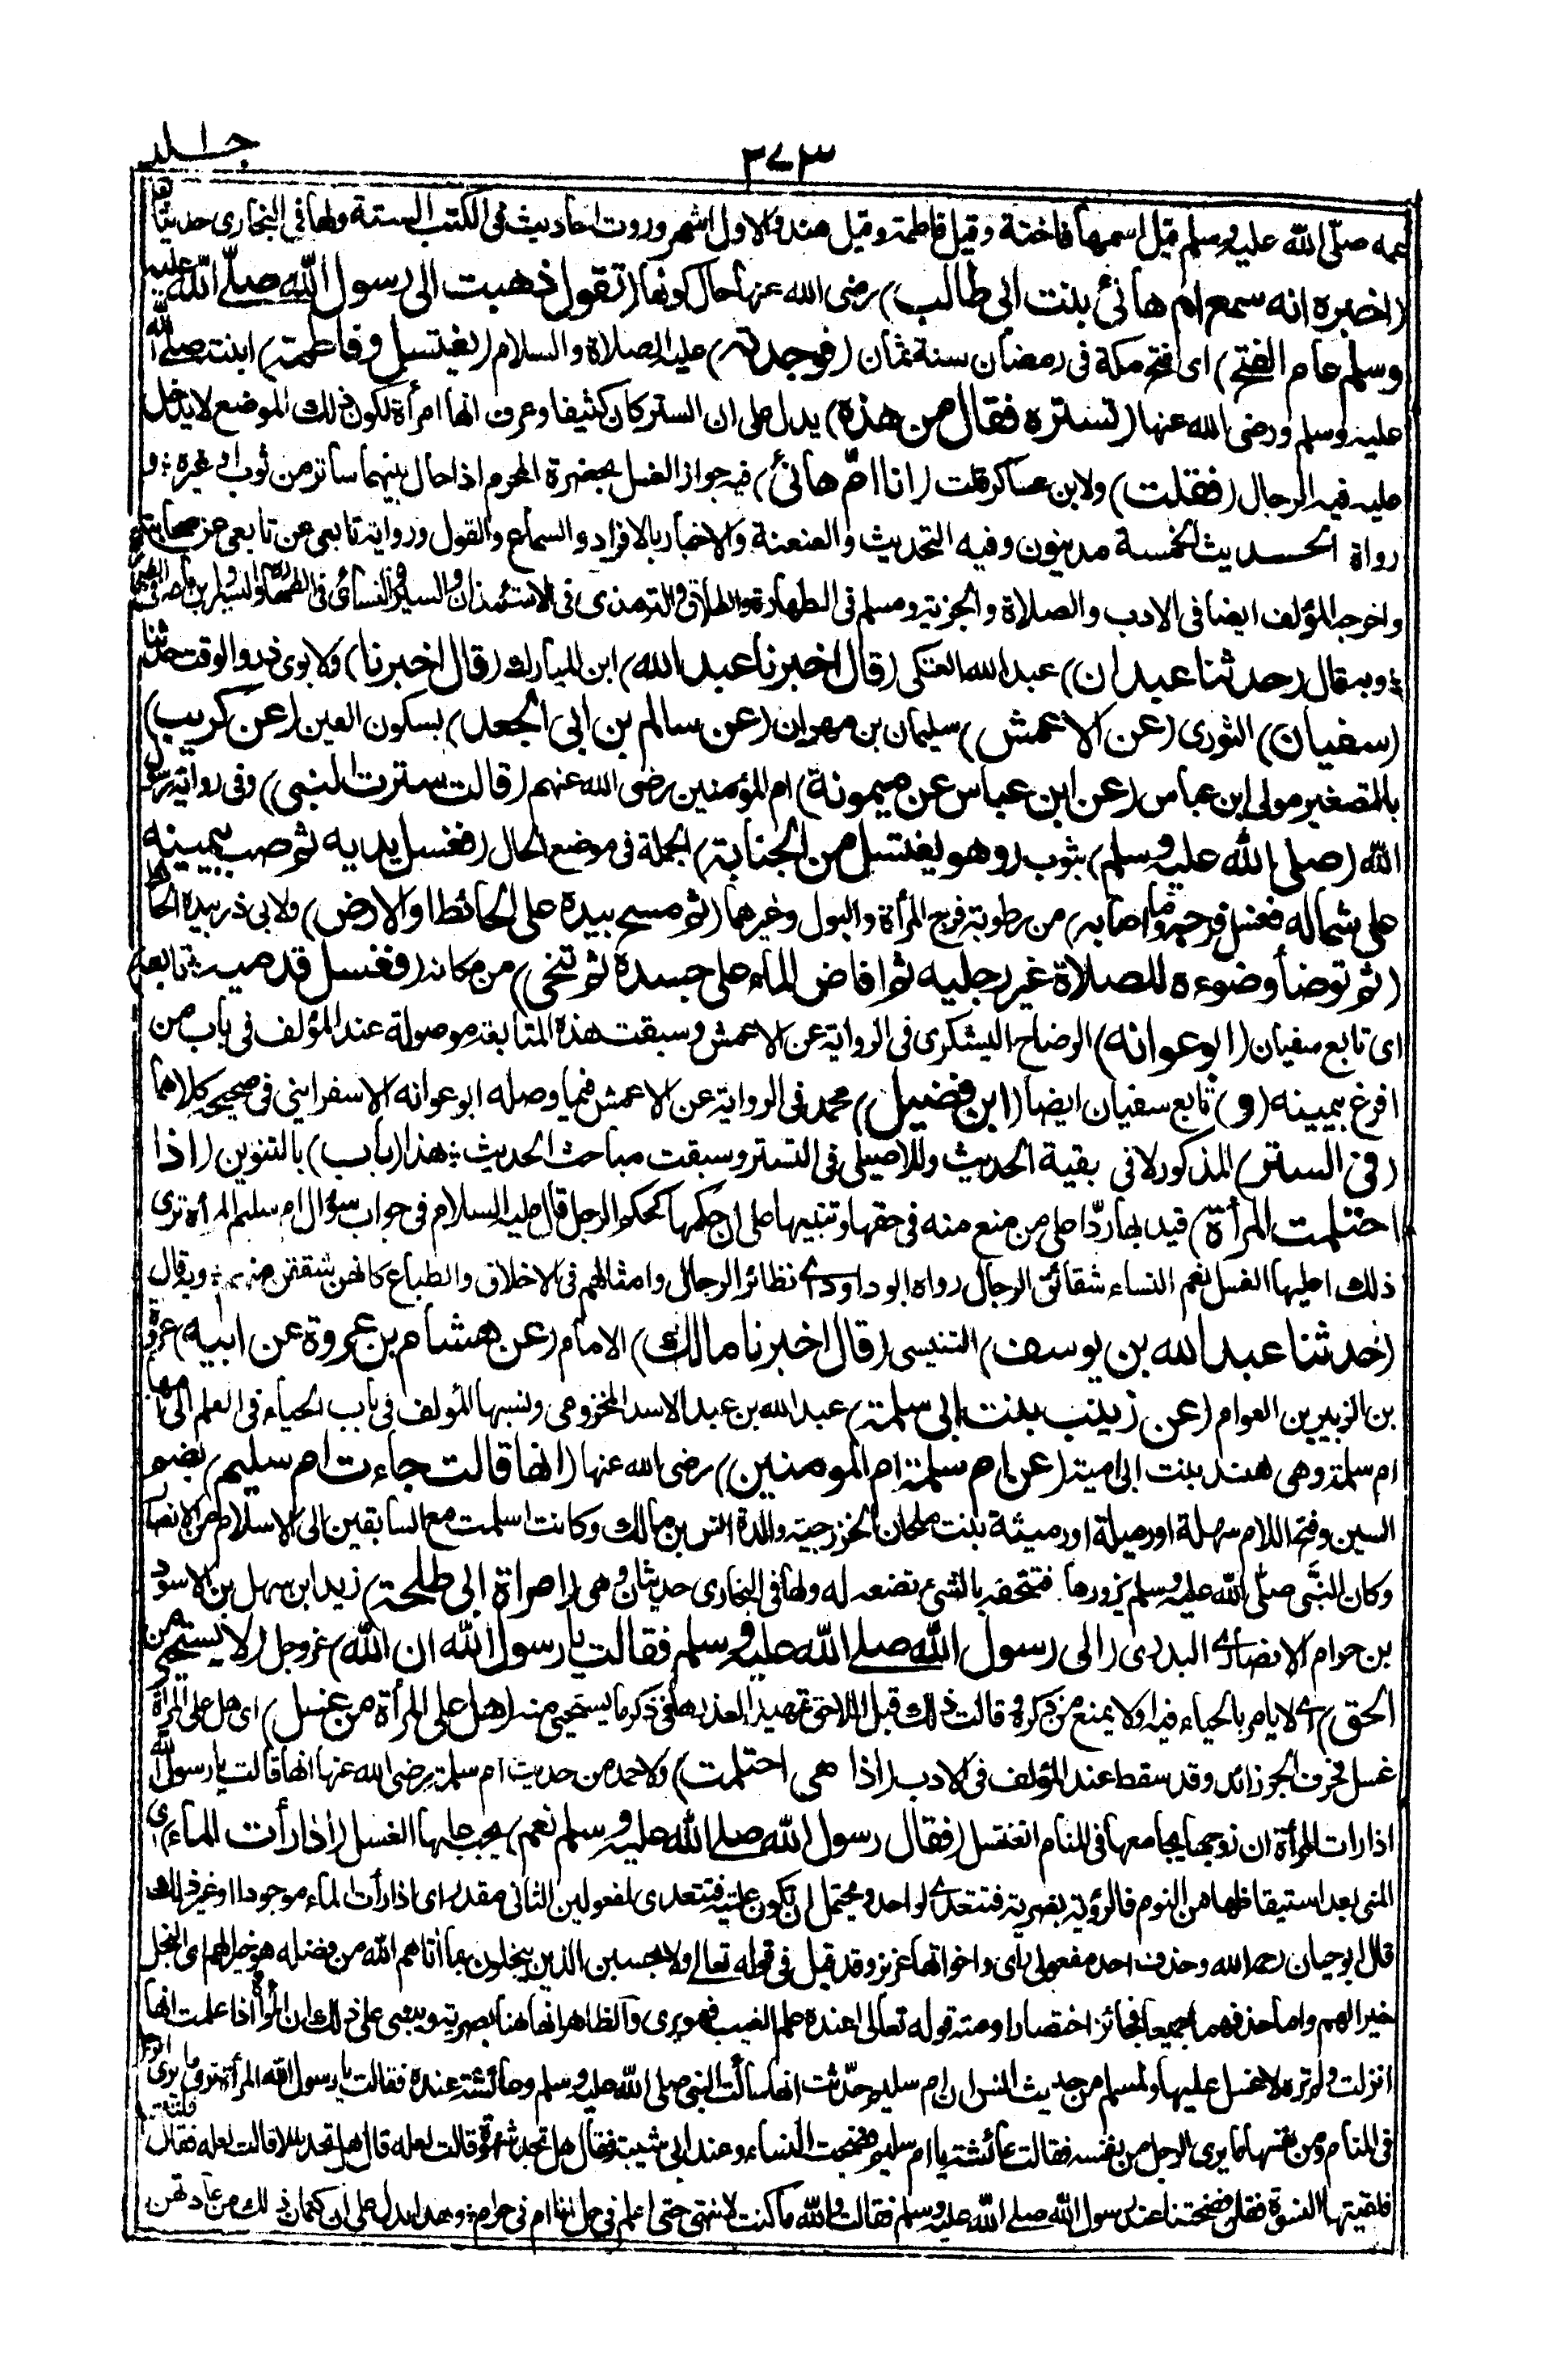 جلد ٣٧٣
عمه صلى الله عليه وسلم قيل اسمها فاختة وقيل فاطمة وقيل هند والاول اشهر وروت احاديث فى الكتب الستة ولها فى البخارى حديثان
(اخبره انه سمع ام هانئ بنت ابى طالب) رضى الله عنها حال كونها (تقول ذهبت الى رسول الله صلى الله عليه
وسلم عام الفتح) اى فتح مكة فى رمضان سنة ثمان (فوجدته) عليه الصلاة والسلام (يغتسل وفاطمة) ابنته صلى الله
عليه وسلم ورضى الله عنها (تستره فقال من هذه) يدل على ان الستر كان كثيفا وعرف انها امرأة لكون ذلك الموضع لا يدخل
عليه فيه الرجال (فقلت) ولابن عساكر قلت (انا ام هانئ) فيه جواز الغسل بحضرة المحرم اذا حال بينهما ساتر من ثوب او غيره ؛ و
رواة الحديث الخمسة مدنيون وفيه التحديث والعنعنة والاخبار بالافراد والسماع والقول ورواية تابعى عن تابعى عن صحابية
واخرجه المؤلف ايضا فى الادب والصلاة والجزية ومسلم فى الطهارة والصلاة والترمذى فى الاستئذان والسير والنسائى فى الطهارة والسير وابن ماجه فى
؛ وبه قال (حدثنا عبدان) عبد الله العتكى (قال اخبرنا عبد الله) ابن المبارك (قال اخبرنا) ولابوى ذر والوقت حدثنا
(سفيان) الثورى (عن الاعمش) سليمان بن مهران (عن سالم بن ابى الجعد) بسكون العين (عن كريب)
بالتصغير مولى ابن عباس (عن ابن عباس عن ميمونة) ام المؤمنين رضى الله عنهم (قالت سترت النبى) وفى رواية رسول
الله (صلى الله عليه وسلم) بثوب (وهو يغتسل من الجنابة) الجملة فى موضع الحال (فغسل يديه ثم صب بيمينه
على شماله فغسل فرجه وما اصابه) من رطوبة فرج المرأة والبول وغيرهما (ثم مسح بيده على الحائط او الارض) ولابى ذر بيده الحائط
(ثم توضأ وضوءه للصلاة غير رجليه ثم افاض الماء على جسده ثم تنحى) من مكانه (فغسل قدميه ؛ تابعه)
اى تابع سفيان (ابو عوانه) الوضاح اليشكرى فى الرواية عن الاعمش وسبقت هذه المتابعة موصولة عند المؤلف فى باب من
افرغ بيمينه (و) تابع سفيان ايضا (ابن فضيل) محمد فى الرواية عن الاعمش فيما وصله ابو عوانه الاسفراينى فى صحيحه كلاهما
(فى الستر) المذكور لا فى بقية الحديث وللاصيلى فى التستر وسبقت مباحث الحديث ؛ هذا (باب) بالتنوين (اذا
احتلمت المرأة) قيد بها ردّا على من منع منه فى حقها وتنبيها على ان حكمها كحكم الرجل قال عليه السلام فى جواب سؤال ام سليم المرأة ترى
ذلك اعليها الغسل نعم النساء شقائق الرجال رواه ابو داود اى نظائر الرجال وامثالهم فى الاخلاق والطباع كانهن شققن منهم ؛ وبه قال
(حدثنا عبد الله بن يوسف) التنيسى (قال اخبرنا مالك) الامام (عن هشام بن عروة عن ابيه) عروة
بن الزبير بن العوام (عن زينب بنت ابى سلمة) عبد الله بن عبد الاسد المخزومى ونسبها المؤلف فى باب الحياء فى العلم الى امها
ام سلمة وهى هند بنت ابى امية (عن ام سلمة ام المومنين) رضى الله عنها (انها قالت جاءت ام سليم) بضم
السين وفتح اللام سهلة او رميلة او رميثة بنت ملحان الخزرجية والدة انس بن مالك وكانت اسلمت مع السابقين الى الاسلام من الانصار
وكان النبى صلى الله عليه وسلم يزورها فتتحفه بالشئ تصنعه له ولها فى البخارى حديثان وهى (امراة ابى طلحة) زيد ابن سهل بن الاسود
بن حرام الانصارى البدرى (الى رسول الله صلى الله عليه وسلم فقالت يا رسول الله ان الله) عز وجل (لا يستحيى من
الحق) اى لا يامر بالحياء فيه او لا يمنع من ذكره قالت ذلك قبل اللاحق تمهيدا لعذرها فى ذكر ما يستحيى منه (هل على المرأة من غسل) اى هل على المرأة
غسل فحرف الجر زائد وقد سقط عند المؤلف فى الادب (اذا هى احتلمت) ولاحمد من حديث ام سليم رضى الله عنها انها قالت يا رسول الله
اذا رات المرأة ان زوجها يجامعها فى المنام اتغتسل (فقال رسول الله صلى الله عليه وسلم نعم) يجب عليها الغسل (اذا رأت الماء) اى
المنى بعد استيقاظها من النوم فالرؤية بصرية فتتعدى لواحد ويحتمل ان تكون علمية فتتعدى لمفعولين الثانى مقدر اى اذا رأت الماء موجودا او غير ذلك
قال ابو حيان رحمه الله وحذف احد مفعولى رأى واخواتها عزيز وقد قيل فى قوله تعالى ولا يحسبن الذين يبخلون بما أتاهم الله من فضله هو خيرا لهم اى البخل
خيرا لهم واما حذفهما جميعا فجائز اختصارا ومنه قوله تعالى اعنده علم الغيب فهو يرى والظاهر انها هنا بصرية وينبنى على ذلك ان المرأة اذا علمت انها
انزلت ولم تره لا غسل عليها ولمسلم من حديث انس ان ام سليم حدّثت انها سألت النبى صلى الله عليه وسلم وعائشة عنده فقالت يا رسول الله المرأة ترى ما يرى الرجل
فى المنام ومن نفسها ما يرى الرجل من نفسه فقالت عائشة يا ام سليم فضحت النساء وعند ابن ابى شيبة فقال هل تجد شهوة قالت لعله قال هل تجد بللا قالت لعله فقال
فلقيتها النسوة فقلن فضحتنا عند رسول الله صلى الله عليه وسلم فقالت والله ما كنت لانتهى حتى اعلم فى حل انا ام فى حرام ؛ وهذا يدل على ان كتمان ذلك من عادتهن